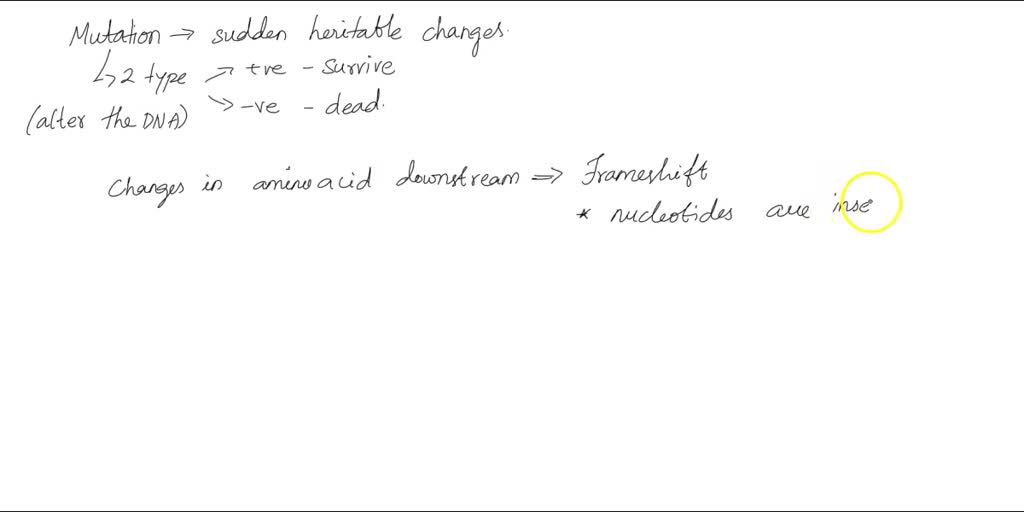 Mutation → sudden heritable changes.
↳ 2 type ↗ +ve - survive
(alter the DNA) ↘ -ve - dead.
Changes in aminoacid downstream ⇒ Frameshift
* nucleotides are inse